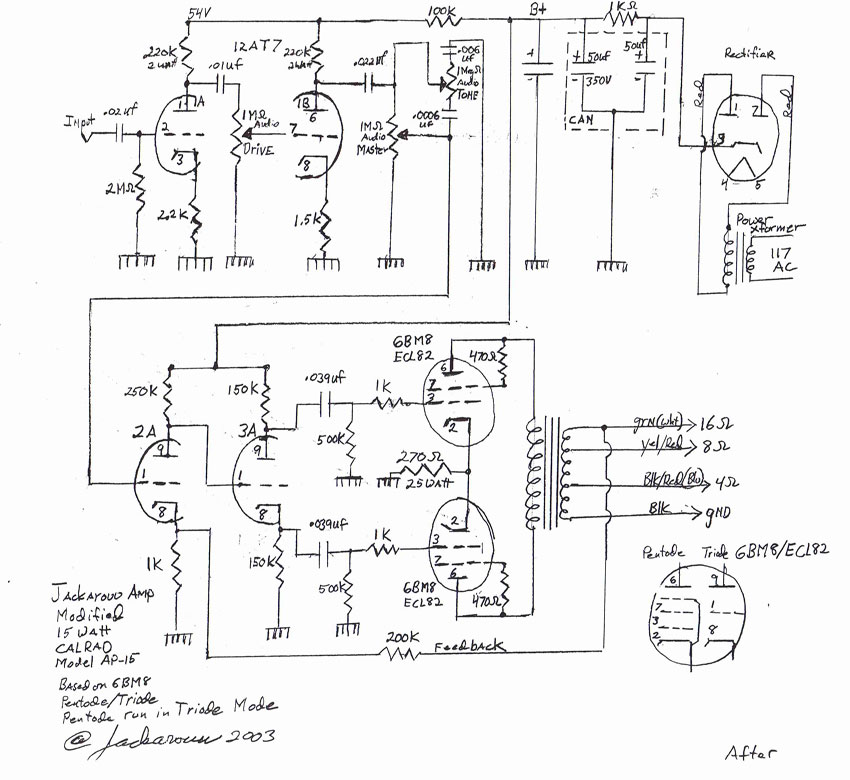 54V
100K
B+
1KΩ
220K
2 watt
12AT7
220K
2 watt
.01uf
.022uf
.006
uf
1MegΩ
Audio
TONE
50uf
350V
50uf
CAN
Rectifier
Red
Red
1
7
3
4
5
Input
.02uf
1A
2
3
1MΩ
Audio
DRIVE
1B
6
7
8
1MΩ
Audio
Master
.0006
uf
2MΩ
2.2K
1.5K
Power
xformer
117
AC
6BM8
ECL82
470Ω
250K
150K
.039uf
1K
6
7
3
2
2A
3A
9
9
1
1
8
8
500K
270Ω
25 Watt
grn(wht) 16Ω
yel/Red 8Ω
Blk/Red(Blu) 4Ω
Blk gND
.039uf
1K
2
3
7
6
1K
150K
500K
6BM8
ECL82
470Ω
Pentode Triode 6BM8/ECL82
6
9
7
1
3
2
8
200K
Feedback
Jackarouu Amp
Modified
15 Watt
CALRAD
Model AP-15
Based on 6BM8
Pentode/Triode
Pentode run in Triode Mode
@ Jackarouu 2003
After